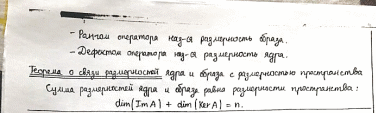 - Рангом оператора наз-ся размерность образа.
- Дефектом оператора наз-ся размерность ядра.
Теорема о связи размерностей ядра и образа с размерностью пространства
Сумма размерностей ядра и образа равна размерности пространства:
dim(Im A) + dim(Ker A) = n.